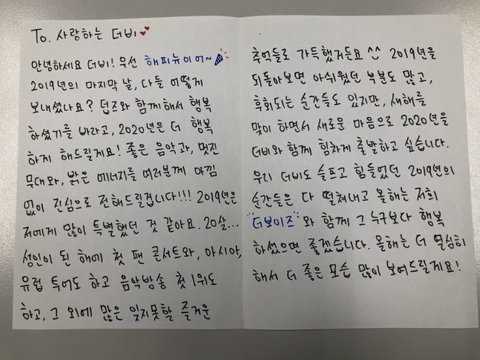 To. 사랑하는 더비
안녕하세요 더비! 우선 해피뉴이어~
2019년의 마지막 날, 다들 어떻게
보내셨나요? 덥즈와 함께해서 행복
하셨기를 바라고, 2020년은 더 행복
하게 해드릴게요! 좋은 음악과, 멋진
무대와, 밝은 에너지를 여러분께 아낌
없이 진심으로 전해드릴겁니다!!! 2019년은
저에게 많이 특별했던 것 같아요. 20살...
성인이 된 해에 첫 팬 콘서트와, 아시아,
유럽 투어도 하고 음악방송 첫 1위도
하고, 그 외에 많은 잊지못할 즐거운
추억들로 가득했거든요 ^^ 2019년을
되돌아보면 아쉬웠던 부분도 많고,
후회되는 순간들도 있지만, 새해를
맞이 하면서 새로운 마음으로 2020년을
더비와 함께 힘차게 출발하고 싶습니다.
우리 더비도 슬프고 힘들었던 2019년의
순간들은 다 떨쳐내고 올해는 저희
더보이즈와 함께 그 누구보다 행복
하셨으면 좋겠습니다. 올해는 더 열심히
해서 더 좋은 모습 많이 보여드릴게요!